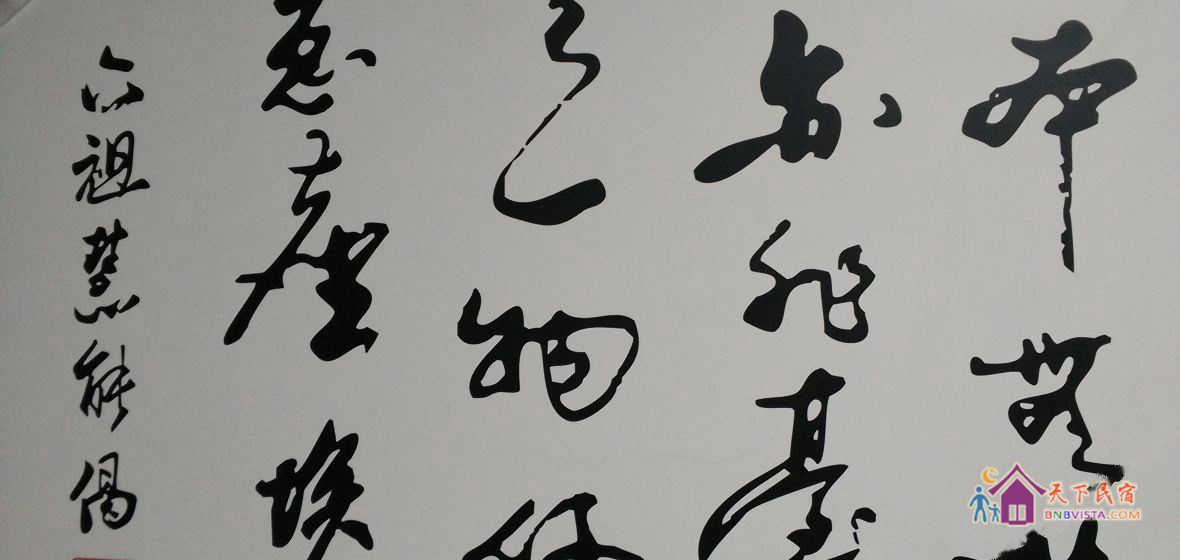 本無
亦非臺
一物
惹塵埃
六祖慧能偈
天下民宿
BNBVISTA.COM